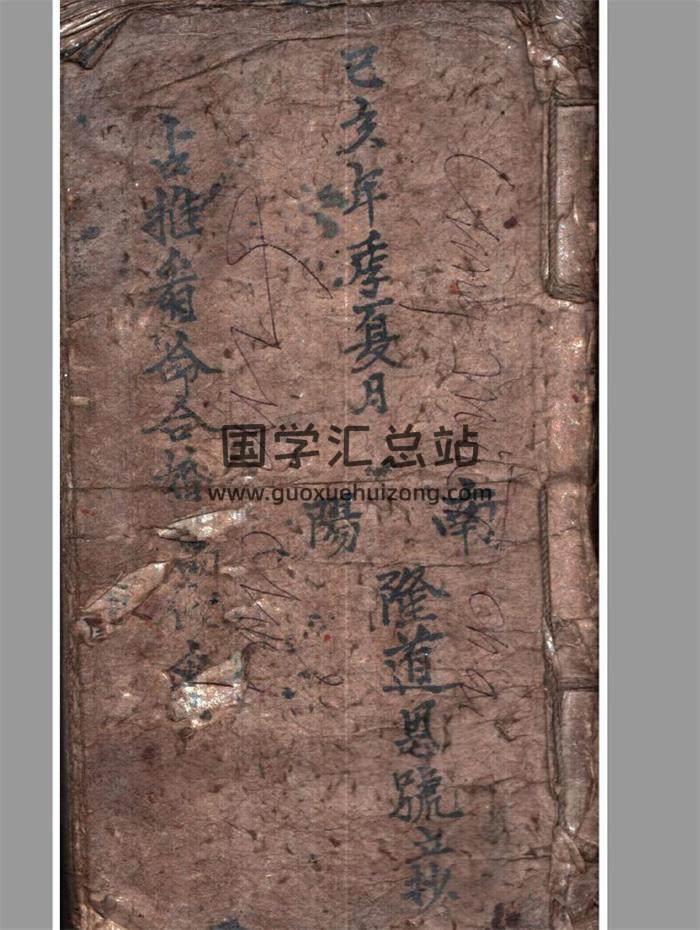 己亥年季夏月
南陽
隆道恩號立抄
占推看命合婚
国学汇总站
www.guoxuehuizong.com